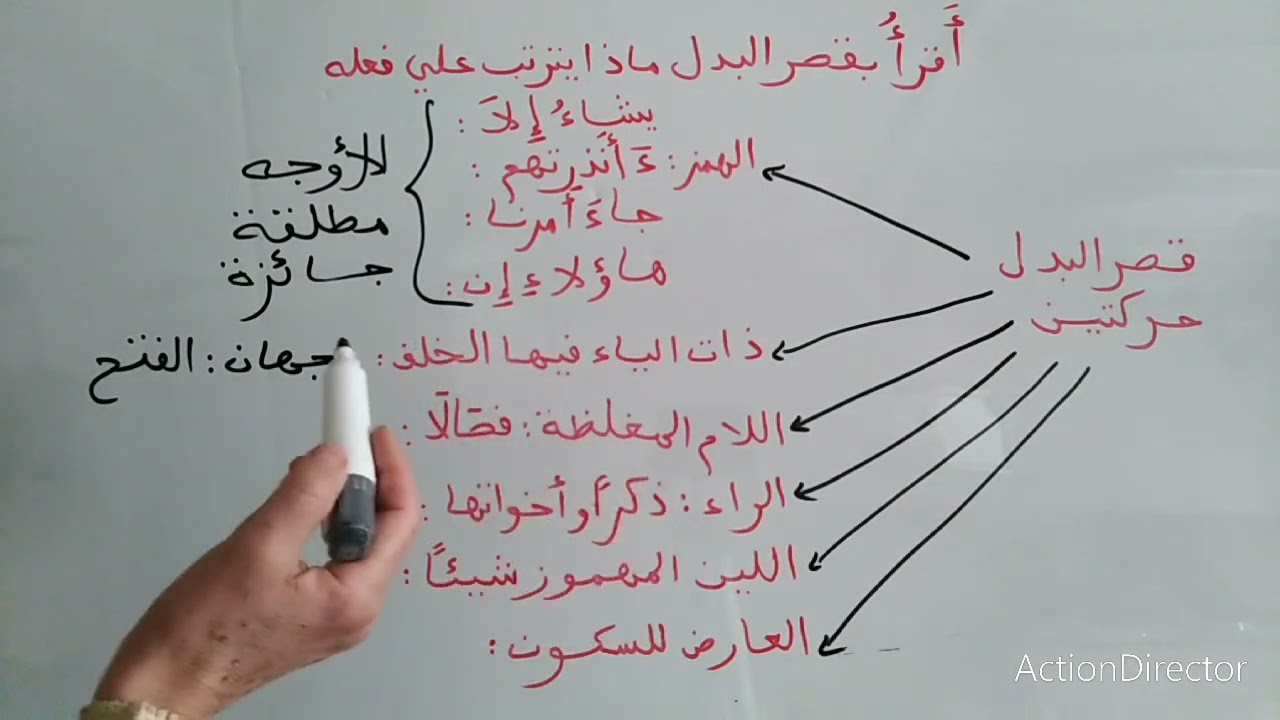 أَقرأُ بقصر البدل ماذا يترتب علي فعله
قصر البدل
حركتين
يشاءُ إِلاَ :
الهمز : ءَأَنذرتهم :
جاءَ أَمرنا :
هاؤلاءِ إِن :
للأوجه
مطلقة
جائزة
ذات الياء فيها الخلف : جهان : الفتح
اللام المغلظة : فصَالًا :
الراء : ذكراً وأخواتها :
اللين المهموز شيئاً :
العارض للسكون :
ActionDirector